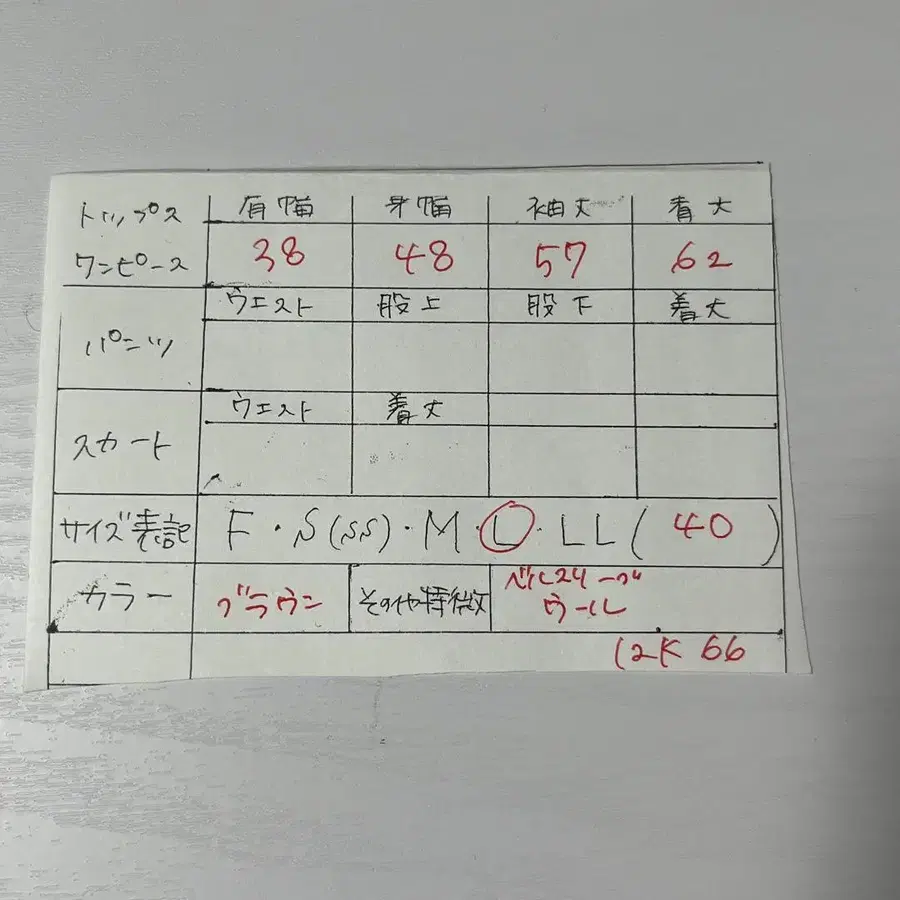 トップス
ワンピース
肩幅 身幅 袖丈 着丈
38 48 57 62
パンツ
ウエスト 股上 股下 着丈
スカート
ウエスト 着丈
サイズ表記 F・S(SS)・M・L・LL( 40 )
カラー ブラウン その他特徴 ベルスリーブ
ウール
12K 66